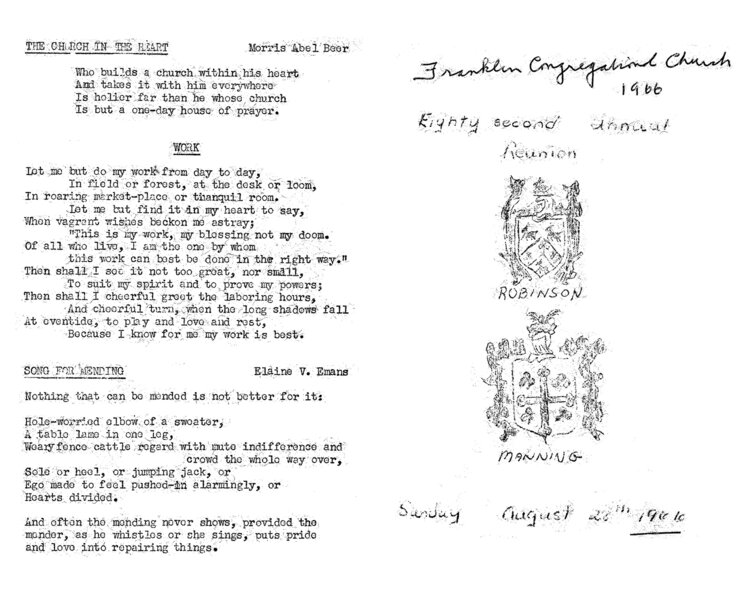 THE CHURCH IN THE HEART Morris Abel Beer
Who builds a church within his heart
And takes it with him everywhere
Is holier far than he whose church
Is but a one-day house of prayer.
WORK
Let me but do my work from day to day,
In field or forest, at the desk or loom,
In roaring market-place or thanquil room.
Let me but find it in my heart to say,
When vagrant wishes beckon me astray;
"This is my work, my blessing not my doom.
Of all who live, I am the one by whom
this work can best be done in the right way."
Then shall I see it not too great, nor small,
To suit my spirit and to prove my powers;
Then shall I cheerful greet the laboring hours,
And cheerful turn, when the long shadows fall
At eventide, to play and love and rest,
Because I know for me my work is best.
SONG FOR MENDING Elaine V. Emans
Nothing that can be mended is not better for it:
Hole-worried elbow of a sweater,
A table lame in one leg,
Weary fence cattle regard with mute indifference and
crowd the whole way over,
Sole or heel, or jumping jack, or
Ego made to feel pushed-in alarmingly, or
Hearts divided.
And often the mending never shows, provided the
mender, as he whistles or she sings, puts pride
and love into repairing things.
Franklin Congregational Church
1966
Eighty second Annual
Reunion
ROBINSON
MANNING
Sunday August 28th 1966